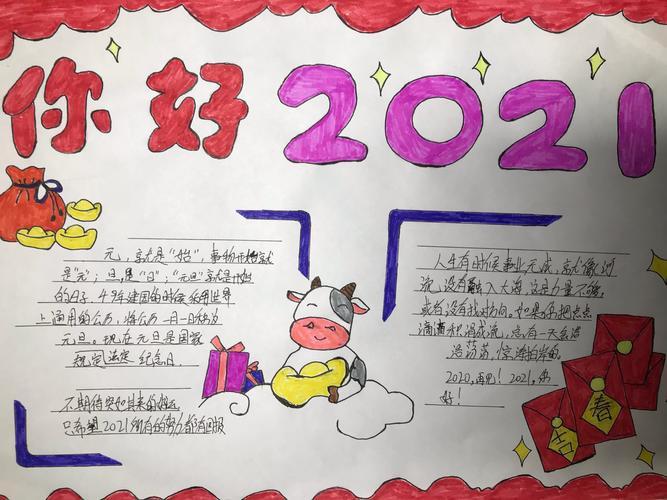 你好2021
元,就是"始",事物开始就
是"元";旦,是"日";"元旦"就是开始
的日子。49年建国的时候采用世界
上通用的公历,将公历一月一日称为
元旦。现在元旦是国家
规定法定纪念日。
不期待突如其来的好运
只希望2021所有的努力都有回报
人生有时候事业无成,就像河
流,没有融入大海,这是力量不够,
或者没有找对方向。如果你把点点
滴滴积涓成流,总有一天会浩
浩荡荡,惊涛拍岸的。
2020,再见!2021,你
好!
吉
春